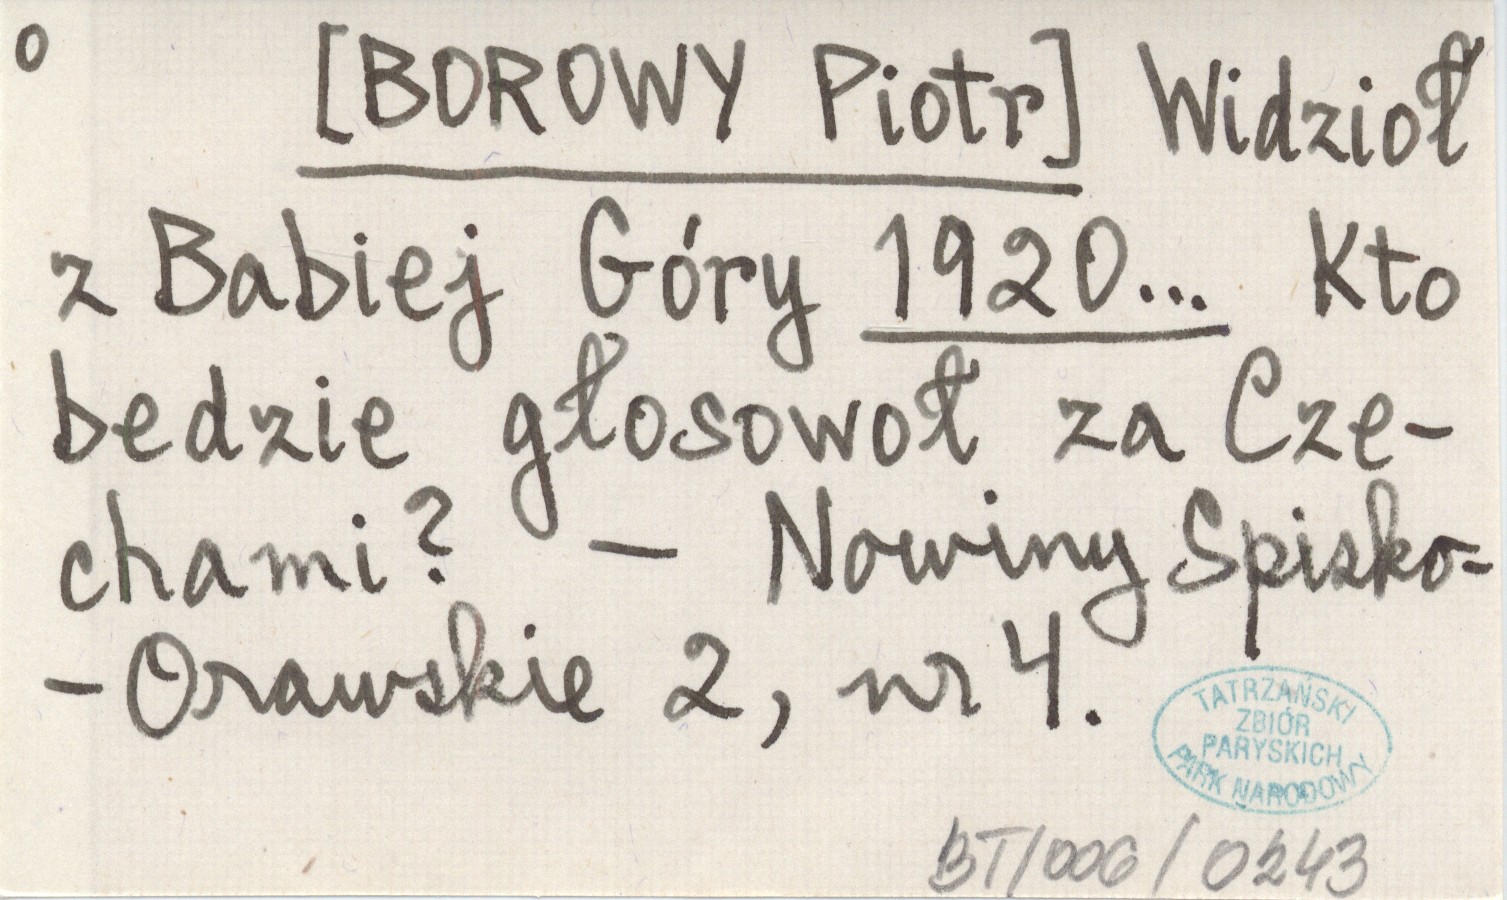 o [BOROWY Piotr] Widzioł
z Babiej Góry 1920... Kto
bedzie głosowoł za Cze-
chami? — Nowiny Spisko-
-Orawskie 2, nr 4.
TATRZAŃSKI
ZBIÓR
PARYSKICH
PARK NARODOWY
BT/006/0243